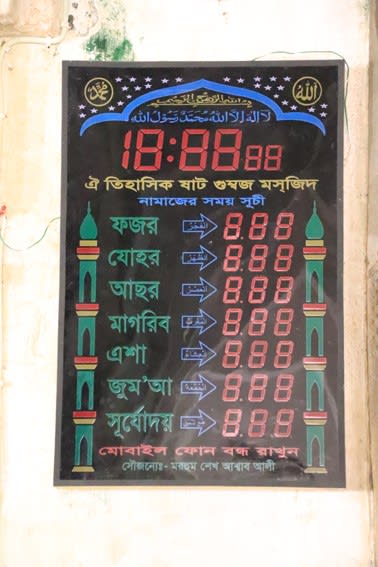 محمد الله
بسم الله الرحمن الرحيم
لا اله الا الله محمد رسول الله
18:88 88
ঐ তিহাসিক ষাট গুম্বজ মস্জিদ
নামাজের সময় সূচী
ফজর الفجر 8.88
যোহর الظهر 8.88
আছর العصر 8.88
মাগরিব المغرب 8.88
এশা العشاء 8.88
জুম'আ الجمعة 8.88
সূর্যোদয় 8.88
মোবাইল ফোন বন্ধ রাখুন
সৌজন্যেঃ- মরহুম শেখ আশ্বাব আলী